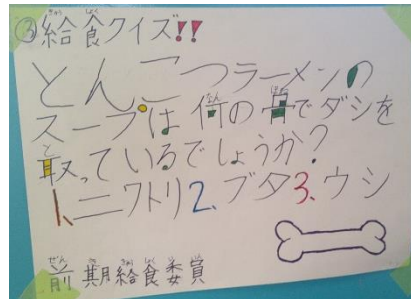 ③給食クイズ!!
とんこつラーメンの
スープは何の骨でダシを
取っているでしょうか?
1、ニワトリ2、ブタ3、ウシ
前期給食委員